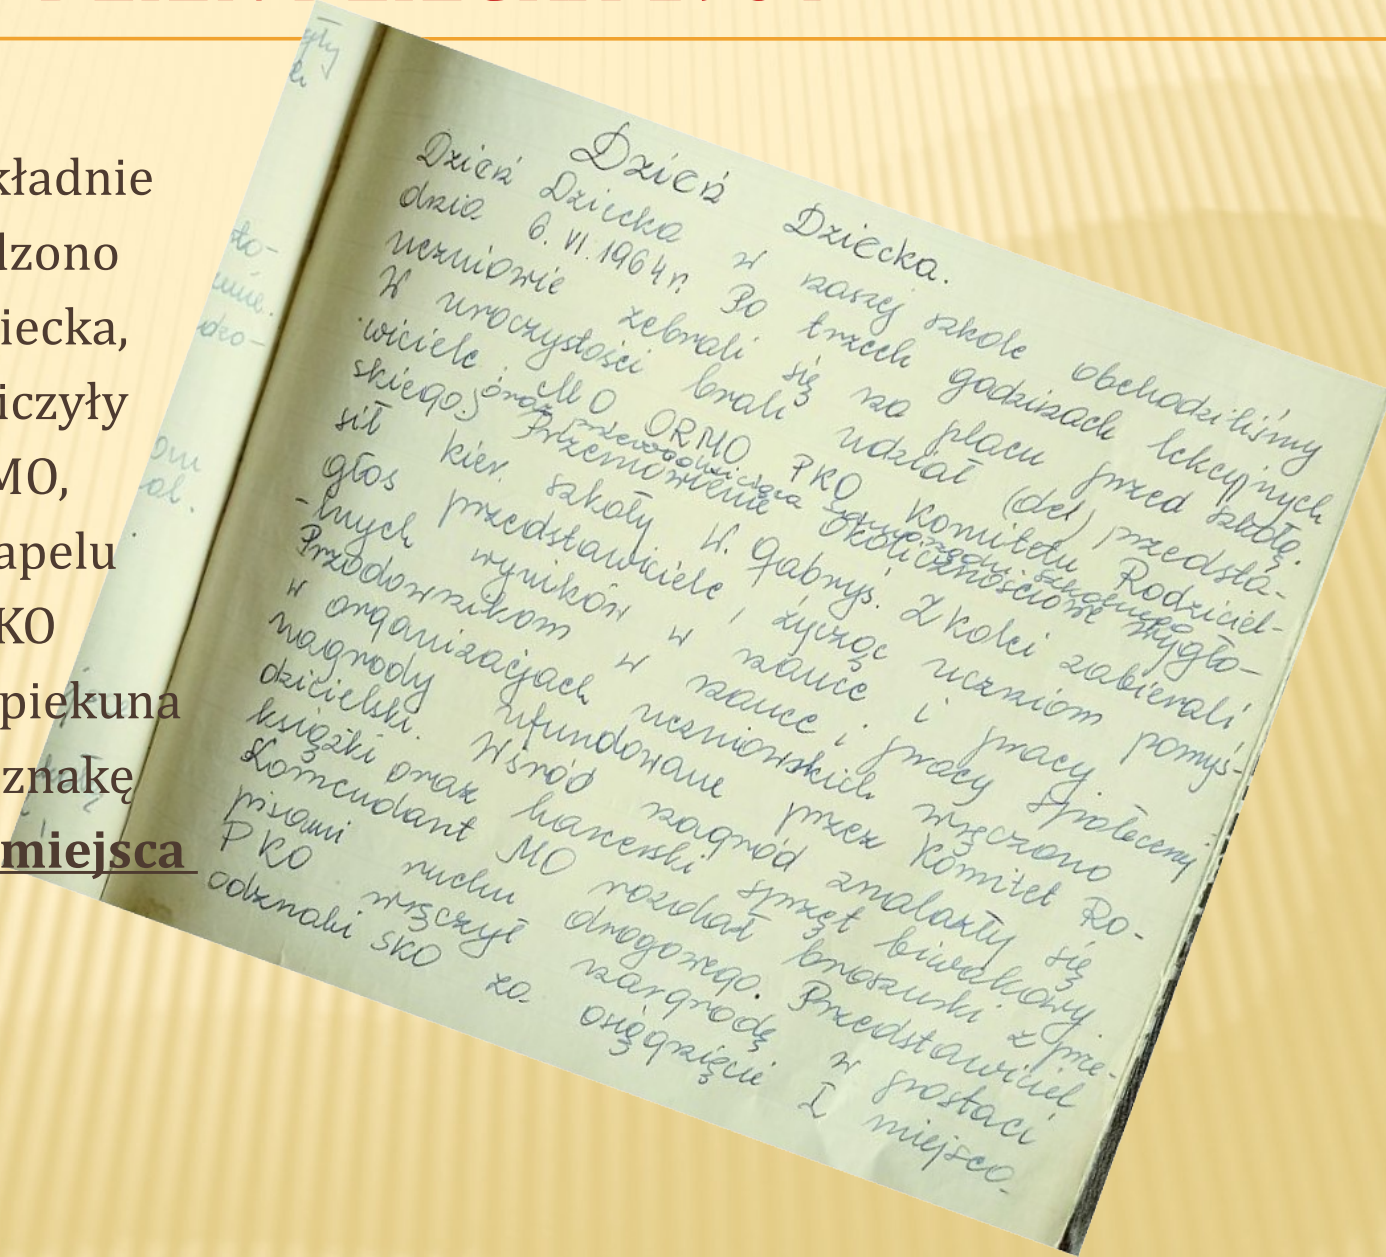 kładnie
dzono
iecka,
iczyły
MO,
apelu
KO
piekuna
znakę
miejsca
Dzień Dziecka.
Dzień Dziecka w naszej szkole obchodziliśmy
dnia 6. VI. 1964 r. Po trzech godzinach lekcyjnych
uczniowie zebrali się na placu przed szkołą.
W uroczystości brali udział (del) przedsta-
wiciele: MO ORMO PKO Komitetu Rodziciel-
skiego oraz
Przemówienie okolicznościowe wygło-
sił kier. szkoły W. Gabryś. Z kolei zabierali
głos przedstawiciele, życząc uczniom pomyś-
-lnych wyników w nauce i pracy.
Przodownikom w nauce i pracy społecznej
w organizacjach uczniowskich wręczono
nagrody ufundowane przez Komitet Ro-
dzicielski. Wśród nagród znalazły się
książki oraz harcerski sprzęt biwakowy.
Komendant MO rozdał broszurki z prze-
pisami ruchu drogowego. Przedstawiciel
PKO wręczył nargrodę w postaci
odznaki SKO za osiągnięcie I miejsca